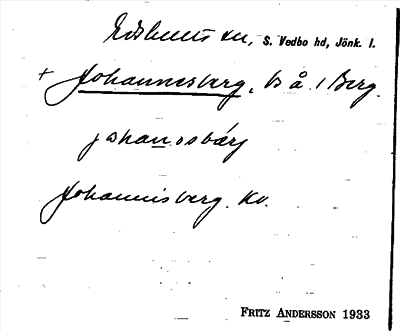 Edshults sn, S. Vedbo hd, Jönk. l.
+ Johannesberg, bs å. 1 Berg.
johanɔsbärj
Johannisberg. Kv.
FRITZ ANDERSSON 1933